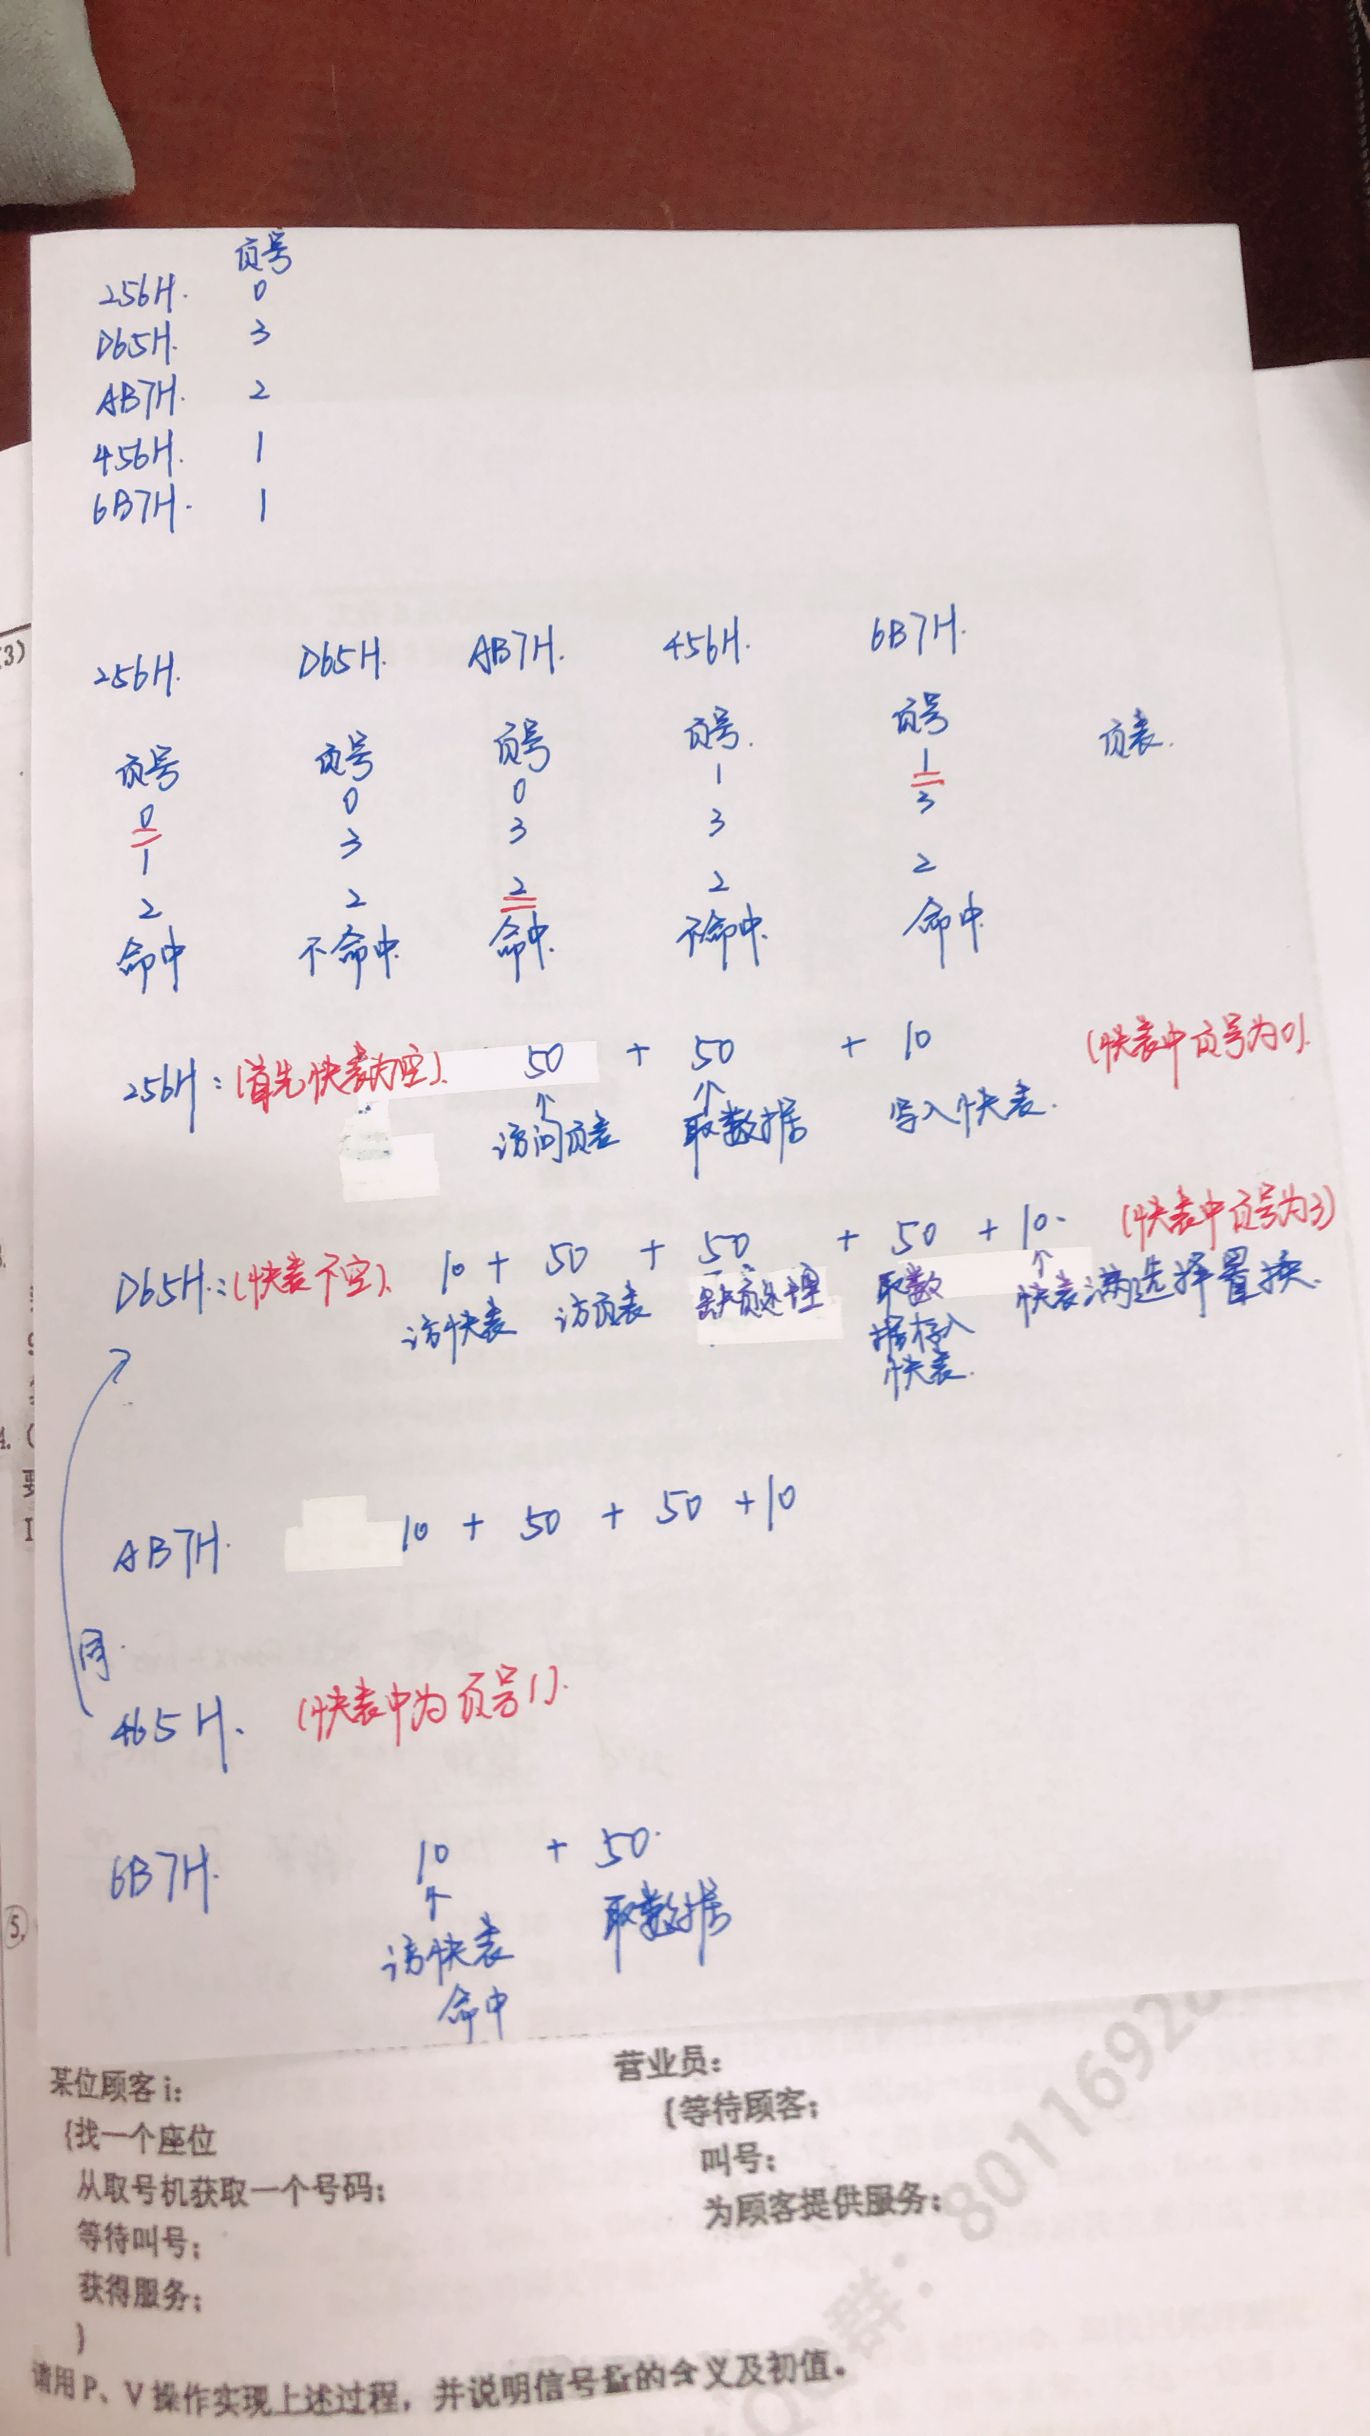 页号
256H. 0
D65H. 3
AB7H. 2
456H. 1
6B7H. 1
256H. D65H. AB7H. 456H. 6B7H.
页号 页号 页号 页号. 页号 页表.
0 0 0 1 1
1 3 3 3 3
2 2 2 2 2
命中 不命中. 命中. 不命中. 命中.
256H: (首先快表为空). 50 + 50 + 10 (快表中页号为0).
访问页表 取数据 写入快表.
D65H.: (快表不空). 10 + 50 + 50 + 50 + 10. (快表中页号为3)
访快表 访页表 缺页处理 取数 快表满选择置换.
据存入
快表.
AB7H. 10 + 50 + 50 + 10
同.
465H. (快表中为页号1).
6B7H. 10 + 50.
访快表 取数据
命中
(3)
4. (
5.
某位顾客 i:
{找一个座位
从取号机获取一个号码;
等待叫号;
获得服务;
}
营业员:
{等待顾客;
叫号;
为顾客提供服务;
请用 P、V 操作实现上述过程，并说明信号量的含义及初值。
QQ群: 8011692